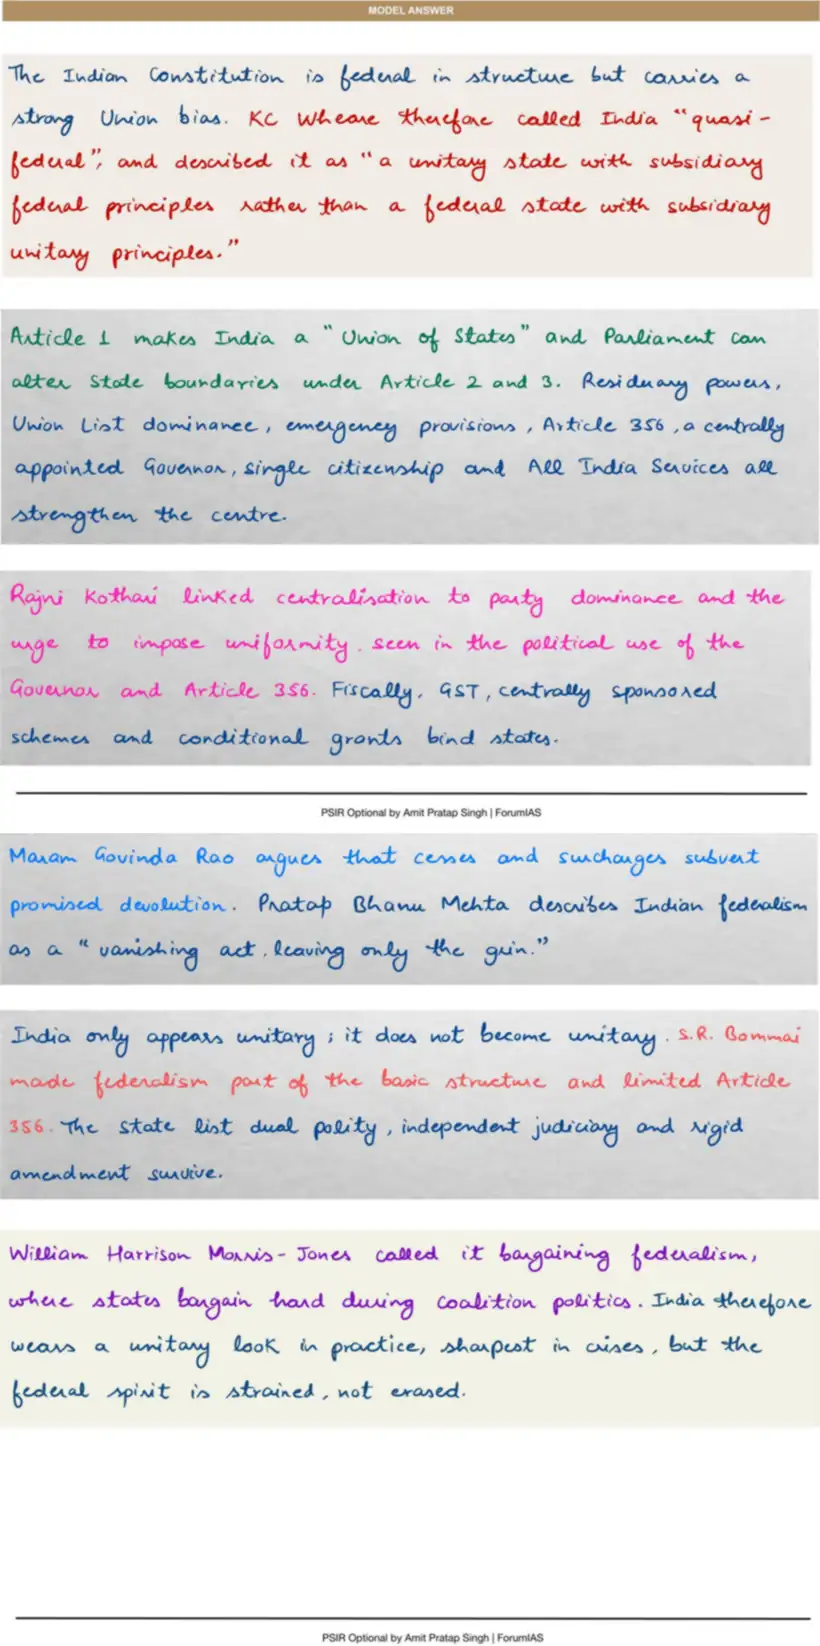 MODEL ANSWER
The Indian Constitution is federal in structure but carries a
strong Union bias. KC Wheare therefore called India "quasi-
federal", and described it as "a unitary state with subsidiary
federal principles rather than a federal state with subsidiary
unitary principles."
Article 1 makes India a "Union of States" and Parliament can
alter State boundaries under Article 2 and 3. Residuary powers,
Union List dominance, emergency provisions, Article 356, a centrally
appointed Governor, single citizenship and All India Services all
strengthen the centre.
Rajni Kothari linked centralisation to party dominance and the
urge to impose uniformity, seen in the political use of the
Governor and Article 356. Fiscally, GST, centrally sponsored
schemes and conditional grants bind states.
PSIR Optional by Amit Pratap Singh | ForumIAS
Maram Govinda Rao argues that cesses and surcharges subvert
promised devolution. Pratap Bhanu Mehta describes Indian federalism
as a "vanishing act, leaving only the grin."
India only appears unitary; it does not become unitary. S.R. Bommai
made federalism part of the basic structure and limited Article
356. The State list dual polity, independent judiciary and rigid
amendment survive.
William Harrison Morris-Jones called it bargaining federalism,
where states bargain hard during coalition politics. India therefore
wears a unitary look in practice, sharpest in crises, but the
federal spirit is strained, not erased.
PSIR Optional by Amit Pratap Singh | ForumIAS